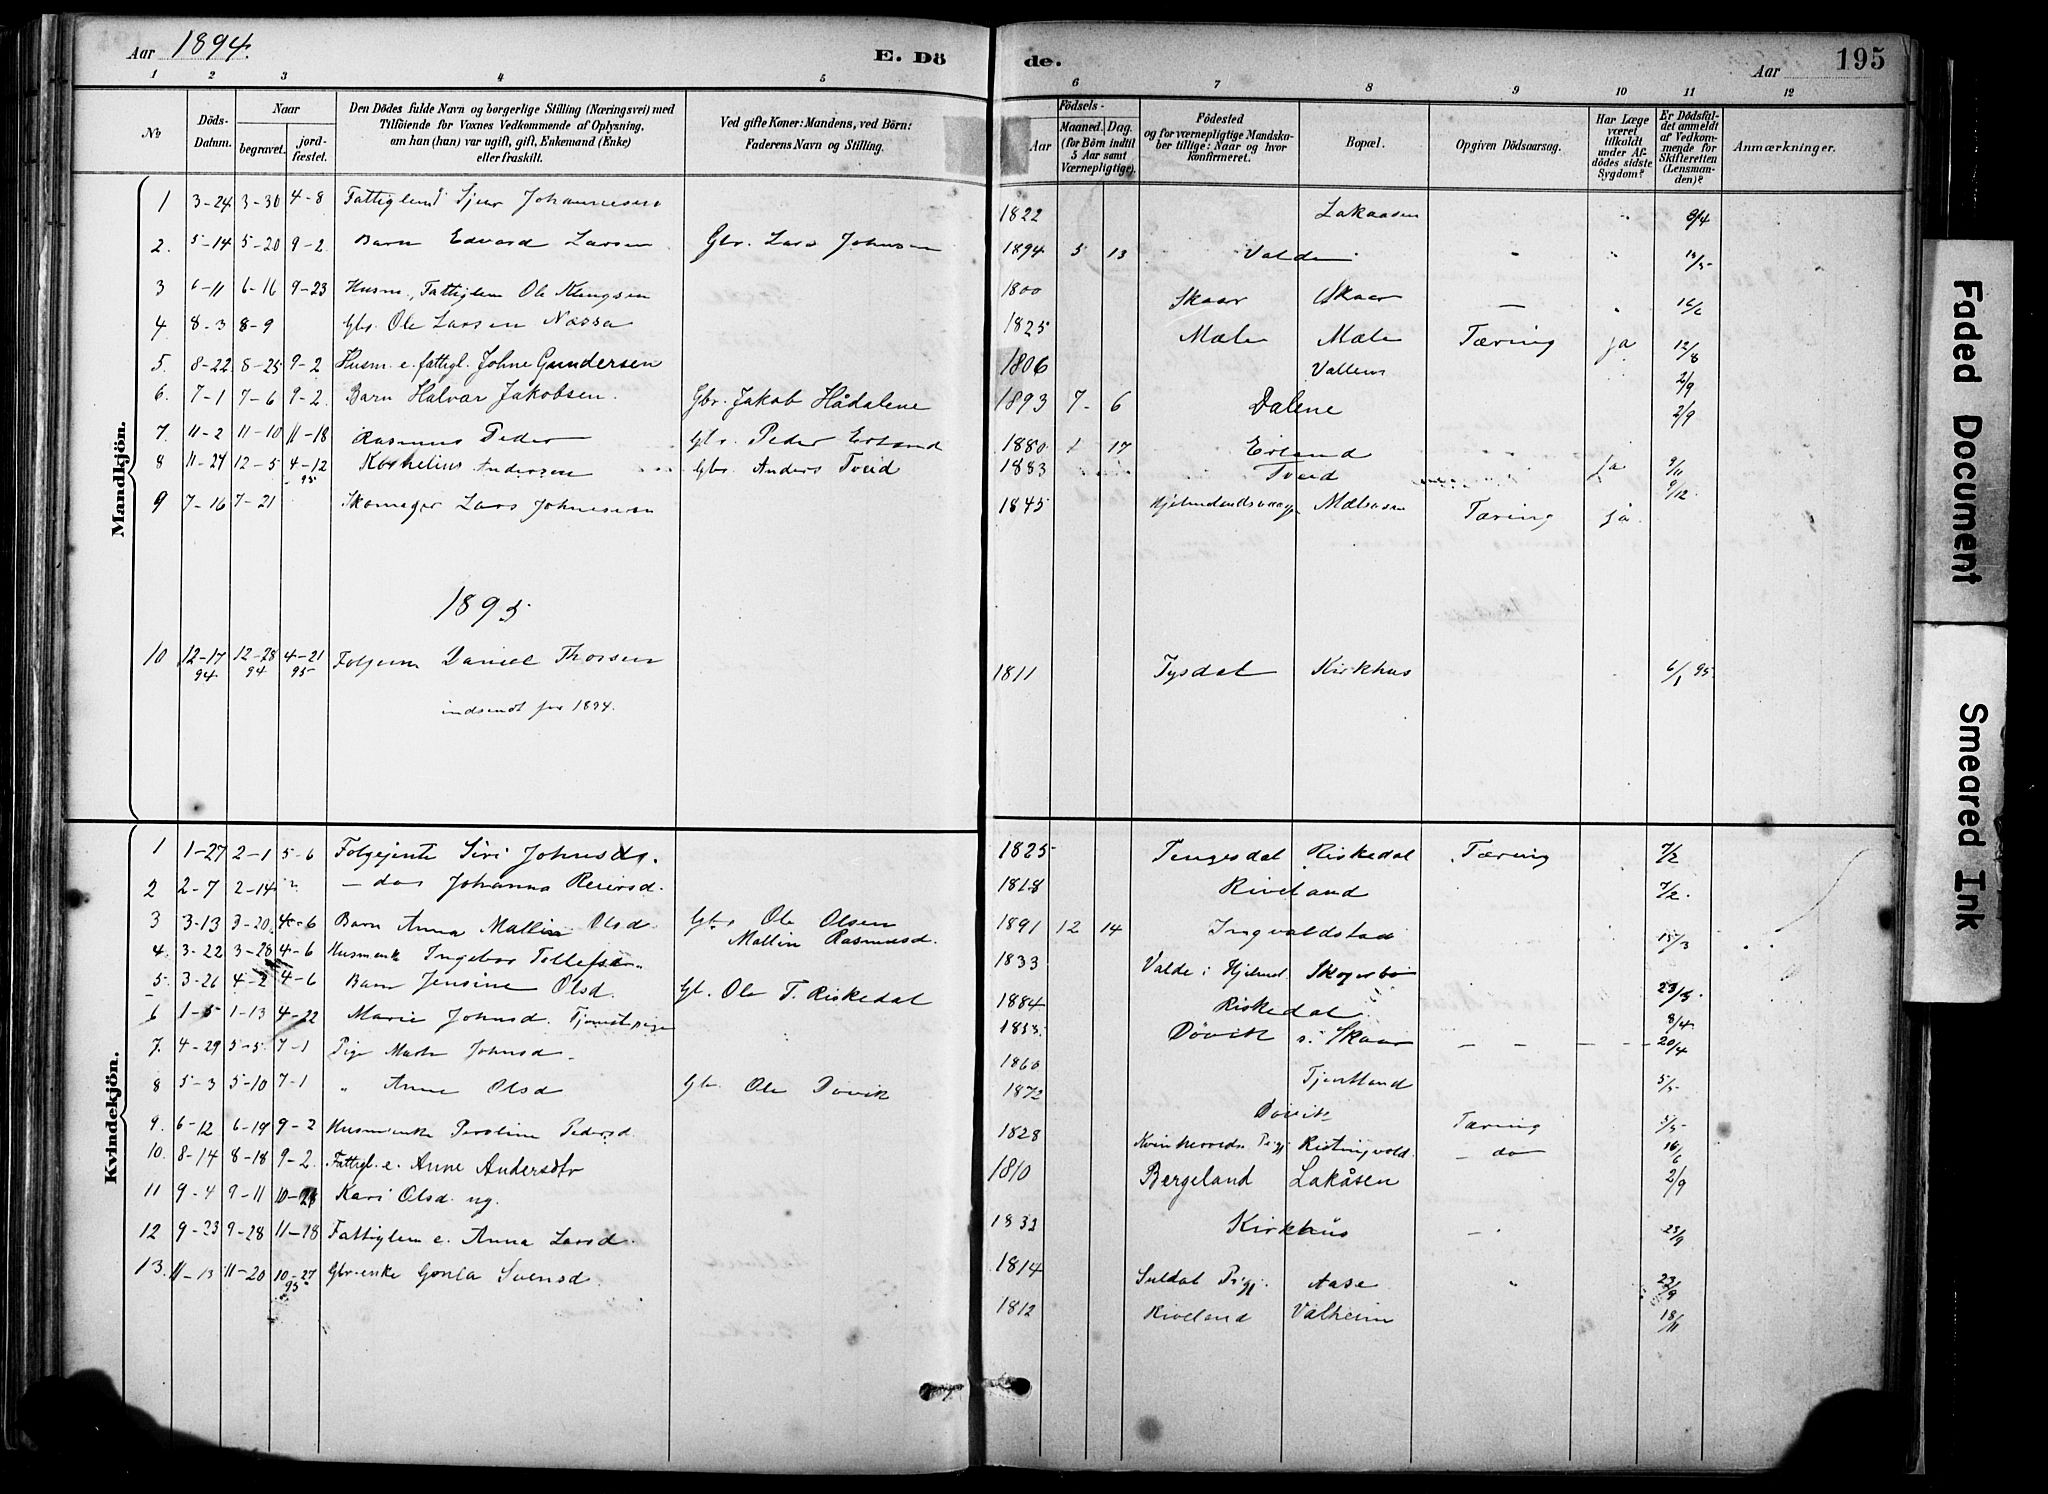 Aar 1894. E. Dö de. Aar 195
1 2 3 4 5 6 7 8 9 10 11 12
No
Döds-Datum.
Naar
begravet.
jordfæstet.
Den Dödes fulde Navn og borgerlige Stilling (Næringsvei) med
Tilföiende for Voxnes Vedkommende af Oplysning,
om han (hun) var ugift, gift, Enkemand (Enke)
eller fraskilt.
Ved gifte Koner: Mandens, ved Börn:
Faderens Navn og Stilling.
Födsels-
Aar
Maaned. Dag.
(for Börn indtil
5 Aar samt
Værnepligtige).
Födested
og for værnepligtige Mandskaber tillige: Naar og hvor
konfirmeret.
Bopæl.
Opgiven Dödsaarsag.
Har Læge
været
tilkaldt
under Afdödes sidste
Sygdom?
Er Dödsfaldet anmeldt
af Vedkommende for
Skifteretten
(Lensmanden)?
Anmærkninger.
Mandkjön.
1 3-24 3-30 4-8 Fattiglem Sjur Johannesen 1822 Lakaasen " 8/4
2. 5-14 5-20 9-2 Barn Edvard Larsen Gbr. Lars Johnsen 1894 5 13 Valde " "
3 6-11 6-16 9-23 Husm., Fattiglem Ole 1800 Skaar Skaar — " 16/6
4 8-3 8-9 Gbr. Ole Larsen Næssa 1825 Mæle Mæle Tæring ja 12/8
5. 8-22 8-25 9-2 Husm. e. fattigl. Johne Gundersen 1806 2/9
6. 7-1 7-6 9-2 Barn Halvar Jakobsen. Gbr. Jakob Hådalene 1893 7- 6 Dalene 2/9
7. 11-2 11-10 11-18 Rasmus Peder Gbr. Peder Erland 1880 1 17 Erland 9/11
8 11-24 12-5 4-12 95 Kornelius Andersen Gbr. Anders Tveid 1883 Tveid ja 9/12
9 7-16 7-21 Skomager Lars Johnsen 1845 Mælsosen Tæring ja
1895
10 12-17 94 12-28 94 4-21 95 Folgem Daniel Thorsen 1811 Tysdal Kirkhus 6/1 95
indsendt for 1894.
Kvindekjön.
1 1-27 2-1 5-6 Folgejente Siri Johnsdr. 1825 Tengesdal Riskedal Tæring 7/2
2 2-7 2-14 " — do Johanna Reiersd. 1818 Kiveland 7/2.
3 3-13 3-20 4-6 Barn Anna Mallin Olsd. Gbr. Ole Olsen 1891 12 14 Ingvaldstad 15/3
Mallin Rasmusd.
4. 3-22 3-28 4-6 Husmenk Ingebor Tollefsen 1833 Valde i Hjelmel. Skogerbø
5. 3-26 4-2 4-6 Barn Jensine Olsd. Gb. Ole T. Riskedal 1884 Riskedal 23/3.
6 1-5 1-13 4-22 Marie Johnsd. Tjenstpige Døvik s. Skaar 8/4
7. 4-29 5-5 7-1 Pige Johnsd. 1860 Tjentland 20/4
8 5-3 5-10 7-1 " Anne Olsd Gbr. Ole Dovik 1872 Døvik 5/5
9. 6-12 6-19 9-2 Husmenke Peroline Pedersd. 1828 Kvinherreds Prgj. Tæring 5/5
10. 8-14 8-18 9-2. Fattigl. e. Anne Andersdtr 1810 Bergeland Lakåsen — do 16/6
11 9-4 9-11 10-28 Kari Olsd. ug. 1832 Kirkhus 2/9
12 9-23 9-28 11-18 Fattiglem e. Anna Larsd. 1814 Suldal Prgj. Aase " 23/9
13. 11-13 11-20 10-27 95 Gbr.enke Gonla Svensd. 1812 Kiveland Valheim 18/11
Faded Document
Smeared Ink